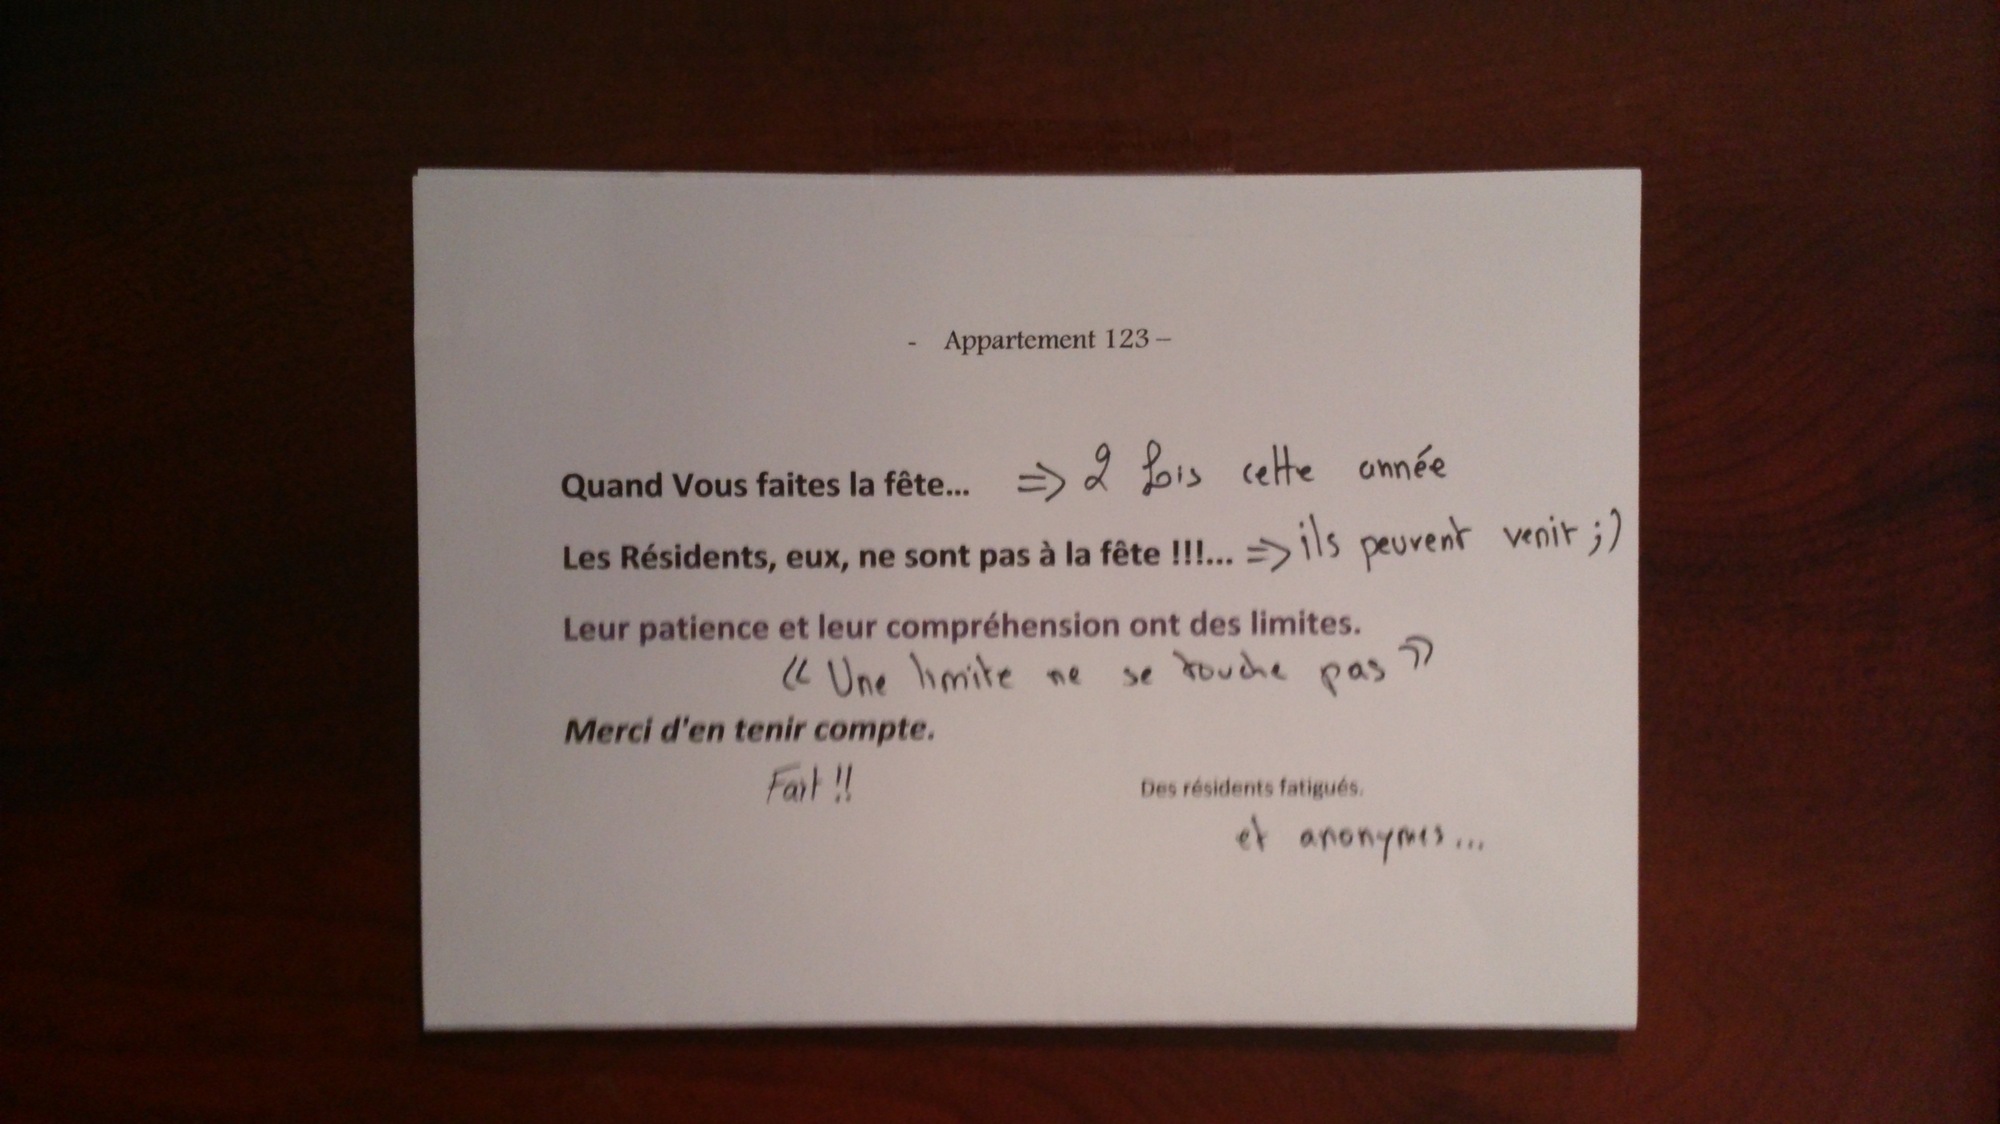 - Appartement 123 –
Quand Vous faites la fête... => 2 fois cette année
Les Résidents, eux, ne sont pas à la fête !!!... => ils peuvent venir ;)
Leur patience et leur compréhension ont des limites.
« Une limite ne se touche pas »
Merci d'en tenir compte.
Fait !!
Des résidents fatigués.
et anonymes...